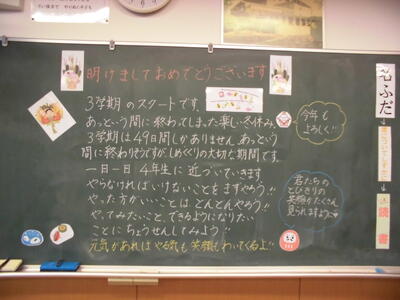 明けましておめでとうございます
3学期のスタートです。
あっという間に終わってしまった楽しい冬休み。
3学期は49日間しかありません。あっという
間に終わりそうですが、しめくくりの大切な期間です。
一日一日4年生に近づいていきます
やらなければいけないことをまずやろう!!
やった方がいいことはどんどんやろう!!
やってみたいこと、できるようになりたい
ことにちょうせんしてみよう
元気があればやる気も笑顔もわいてくるよ!!
今年も
よろしく!!
君たちの
とびきりの
笑顔がたくさん
見られますように
名ふだ
↓
↓
読書